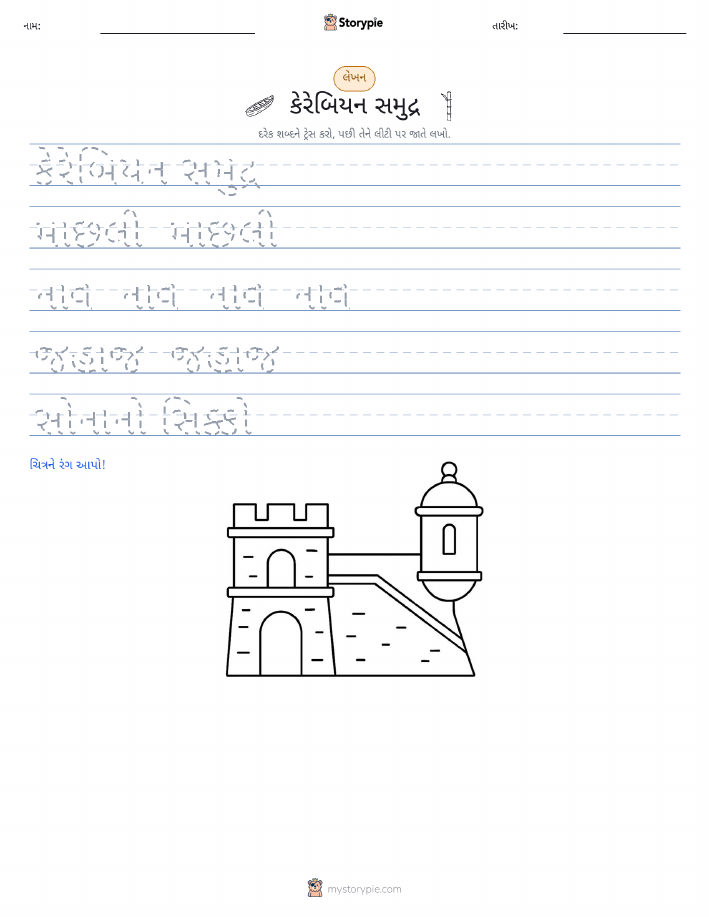 નામ: તારીખ:
Storypie
લેખન
કેરેબિયન સમુદ્ર
દરેક શબ્દને ટ્રેસ કરો, પછી તેને લીટી પર જાતે લખો.
કેરેબિયન સમુદ્ર
માછલી માછલી
નાવ નાવ નાવ નાવ
જહાજ જહાજ
સોનાનો સિક્કો
ચિત્રને રંગ આપો!
mystorypie.com